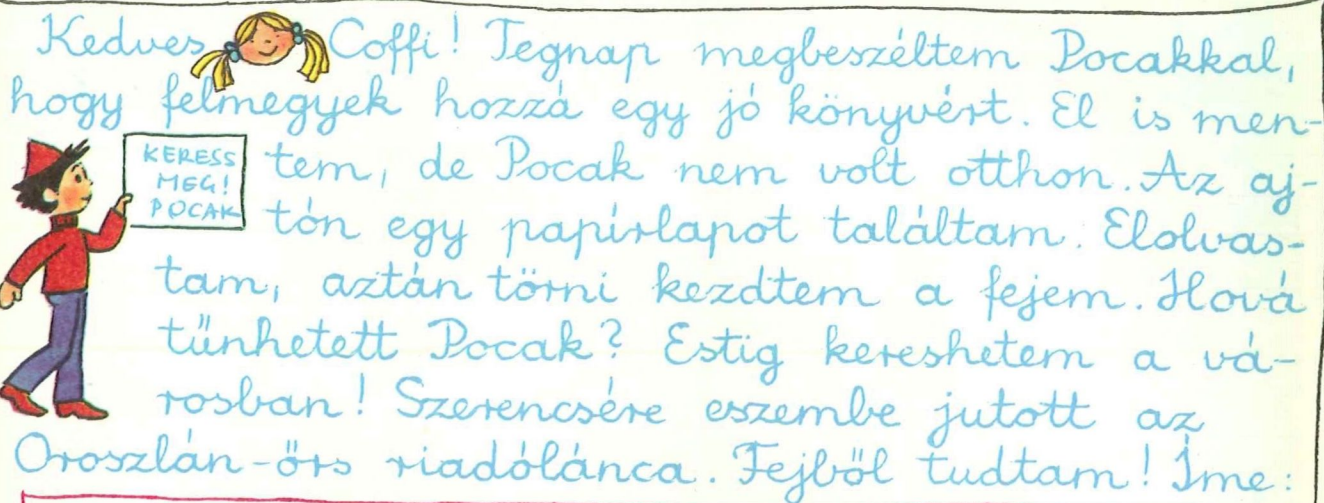 Kedves Coffi! Tegnap megbeszéltem Pocakkal,
hogy felmegyek hozzá egy jó könyvért. El is men-
KERESS
MEG!
POCAK
tem, de Pocak nem volt otthon. Az aj-
tón egy papírlapot találtam. Elolvas-
tam, aztán törni kezdtem a fejem. Hová
tűnhetett Pocak? Estig kereshetem a vá-
rosban! Szerencsére eszembe jutott az
Oroszlán-őrs riadólánca. Fejből tudtam! Íme: